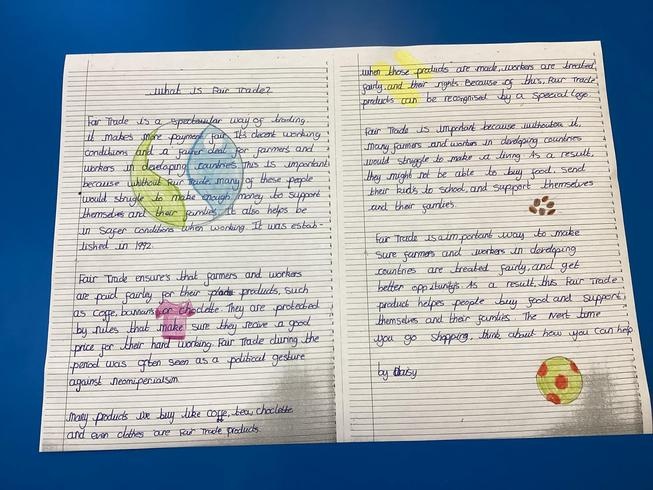 What is Fair Trade?
Fair Trade is a spectacular way of trading.
it makes more payment fair. Its decent working
conditions and a fairer deal for farmers and
workers in developing countries. This is important
because without Fair Trade, many of these people
would strugle to make enough money to support
themselves and their families. It also helps be
in Safer conditions when working. It was estab-
lished in 1992.
Fair Trade ensures that farmers and workers
are paid fairley for their products, such
as coffe, bannans or choclette. They are protected
by rules that make sure they recive a good
price for their hard working. Fair Trade during the
period was often seen as a political gesture
against neomiperialism.
Many products we buy like coffe, tea, choclette
and even clothes are Fair Trade products
when those products are made, workers are treated
fairly and their rights. Because of this, Fair Trade
products can be recognised by a special logo.
Fair Trade is important because withoutou it,
Many farmers and workers in developing countries
would struggle to make a living. As a result,
they might not be able to buy food, send
their kids to school, and support themselves
and their families.
Fair Trade is a important way to make
Sure farmers and workers in developing
countries are treated fairly, and get
better opportunity's. As a result, this Fair Trade
product helps people buy food and support
themselves and their families. The next time
you go shopping, think about how you can help
by Daisy